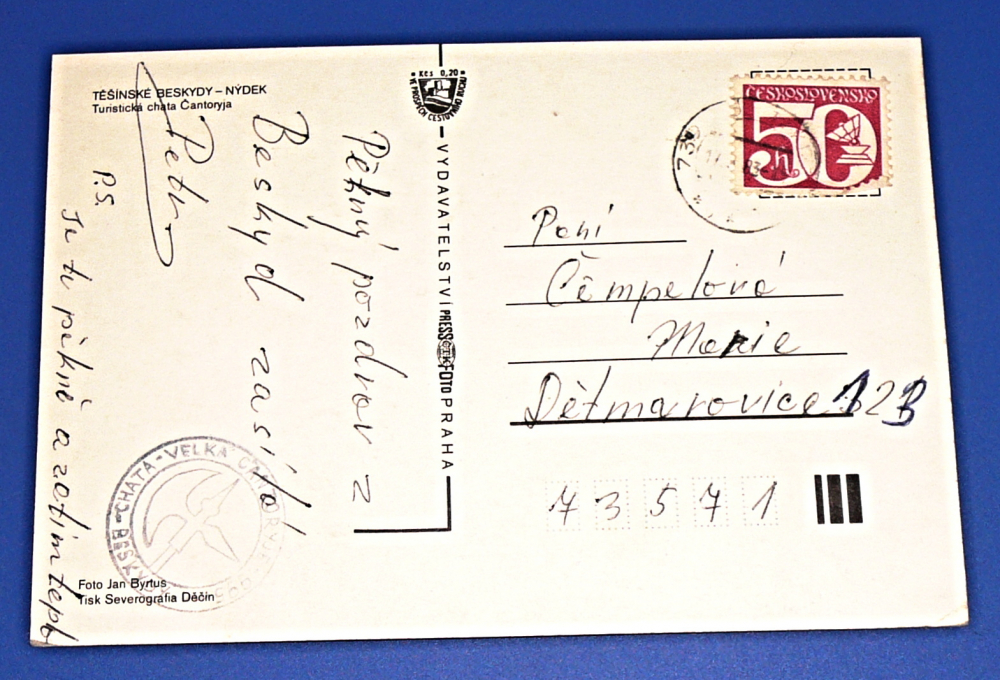 TĚŠÍNSKÉ BESKYDY – NÝDEK
Turistická chata Čantoryja
Pěkný pozdrav z
Beskyd zasílá
Petr
P.S.
Je tu pěkně a zatím teplo
Foto Jan Byrtus
Tisk Severografia Děčín
CHATA - VELKÁ ČANTORYJE
BESKYDY
Kčs 0,20
VE PROSPĚCH CESTOVNÍHO RUCHU
VYDAVATELSTVÍ PRESSFOTO PRAHA
ČTK
ČESKOSLOVENSKO
50 h
Paní
Čempelová
Marie
Dětmarovice 123
73571